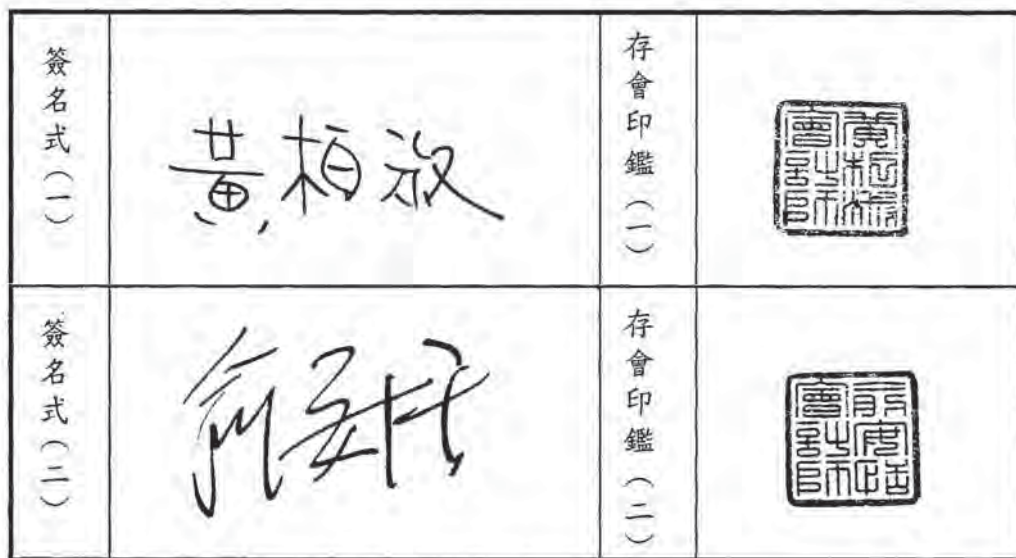 簽名式（一）
黃柏淑
存會印鑑（一）
黃柏淑會計師
簽名式（二）
俞安恬
存會印鑑（二）
俞安恬會計師